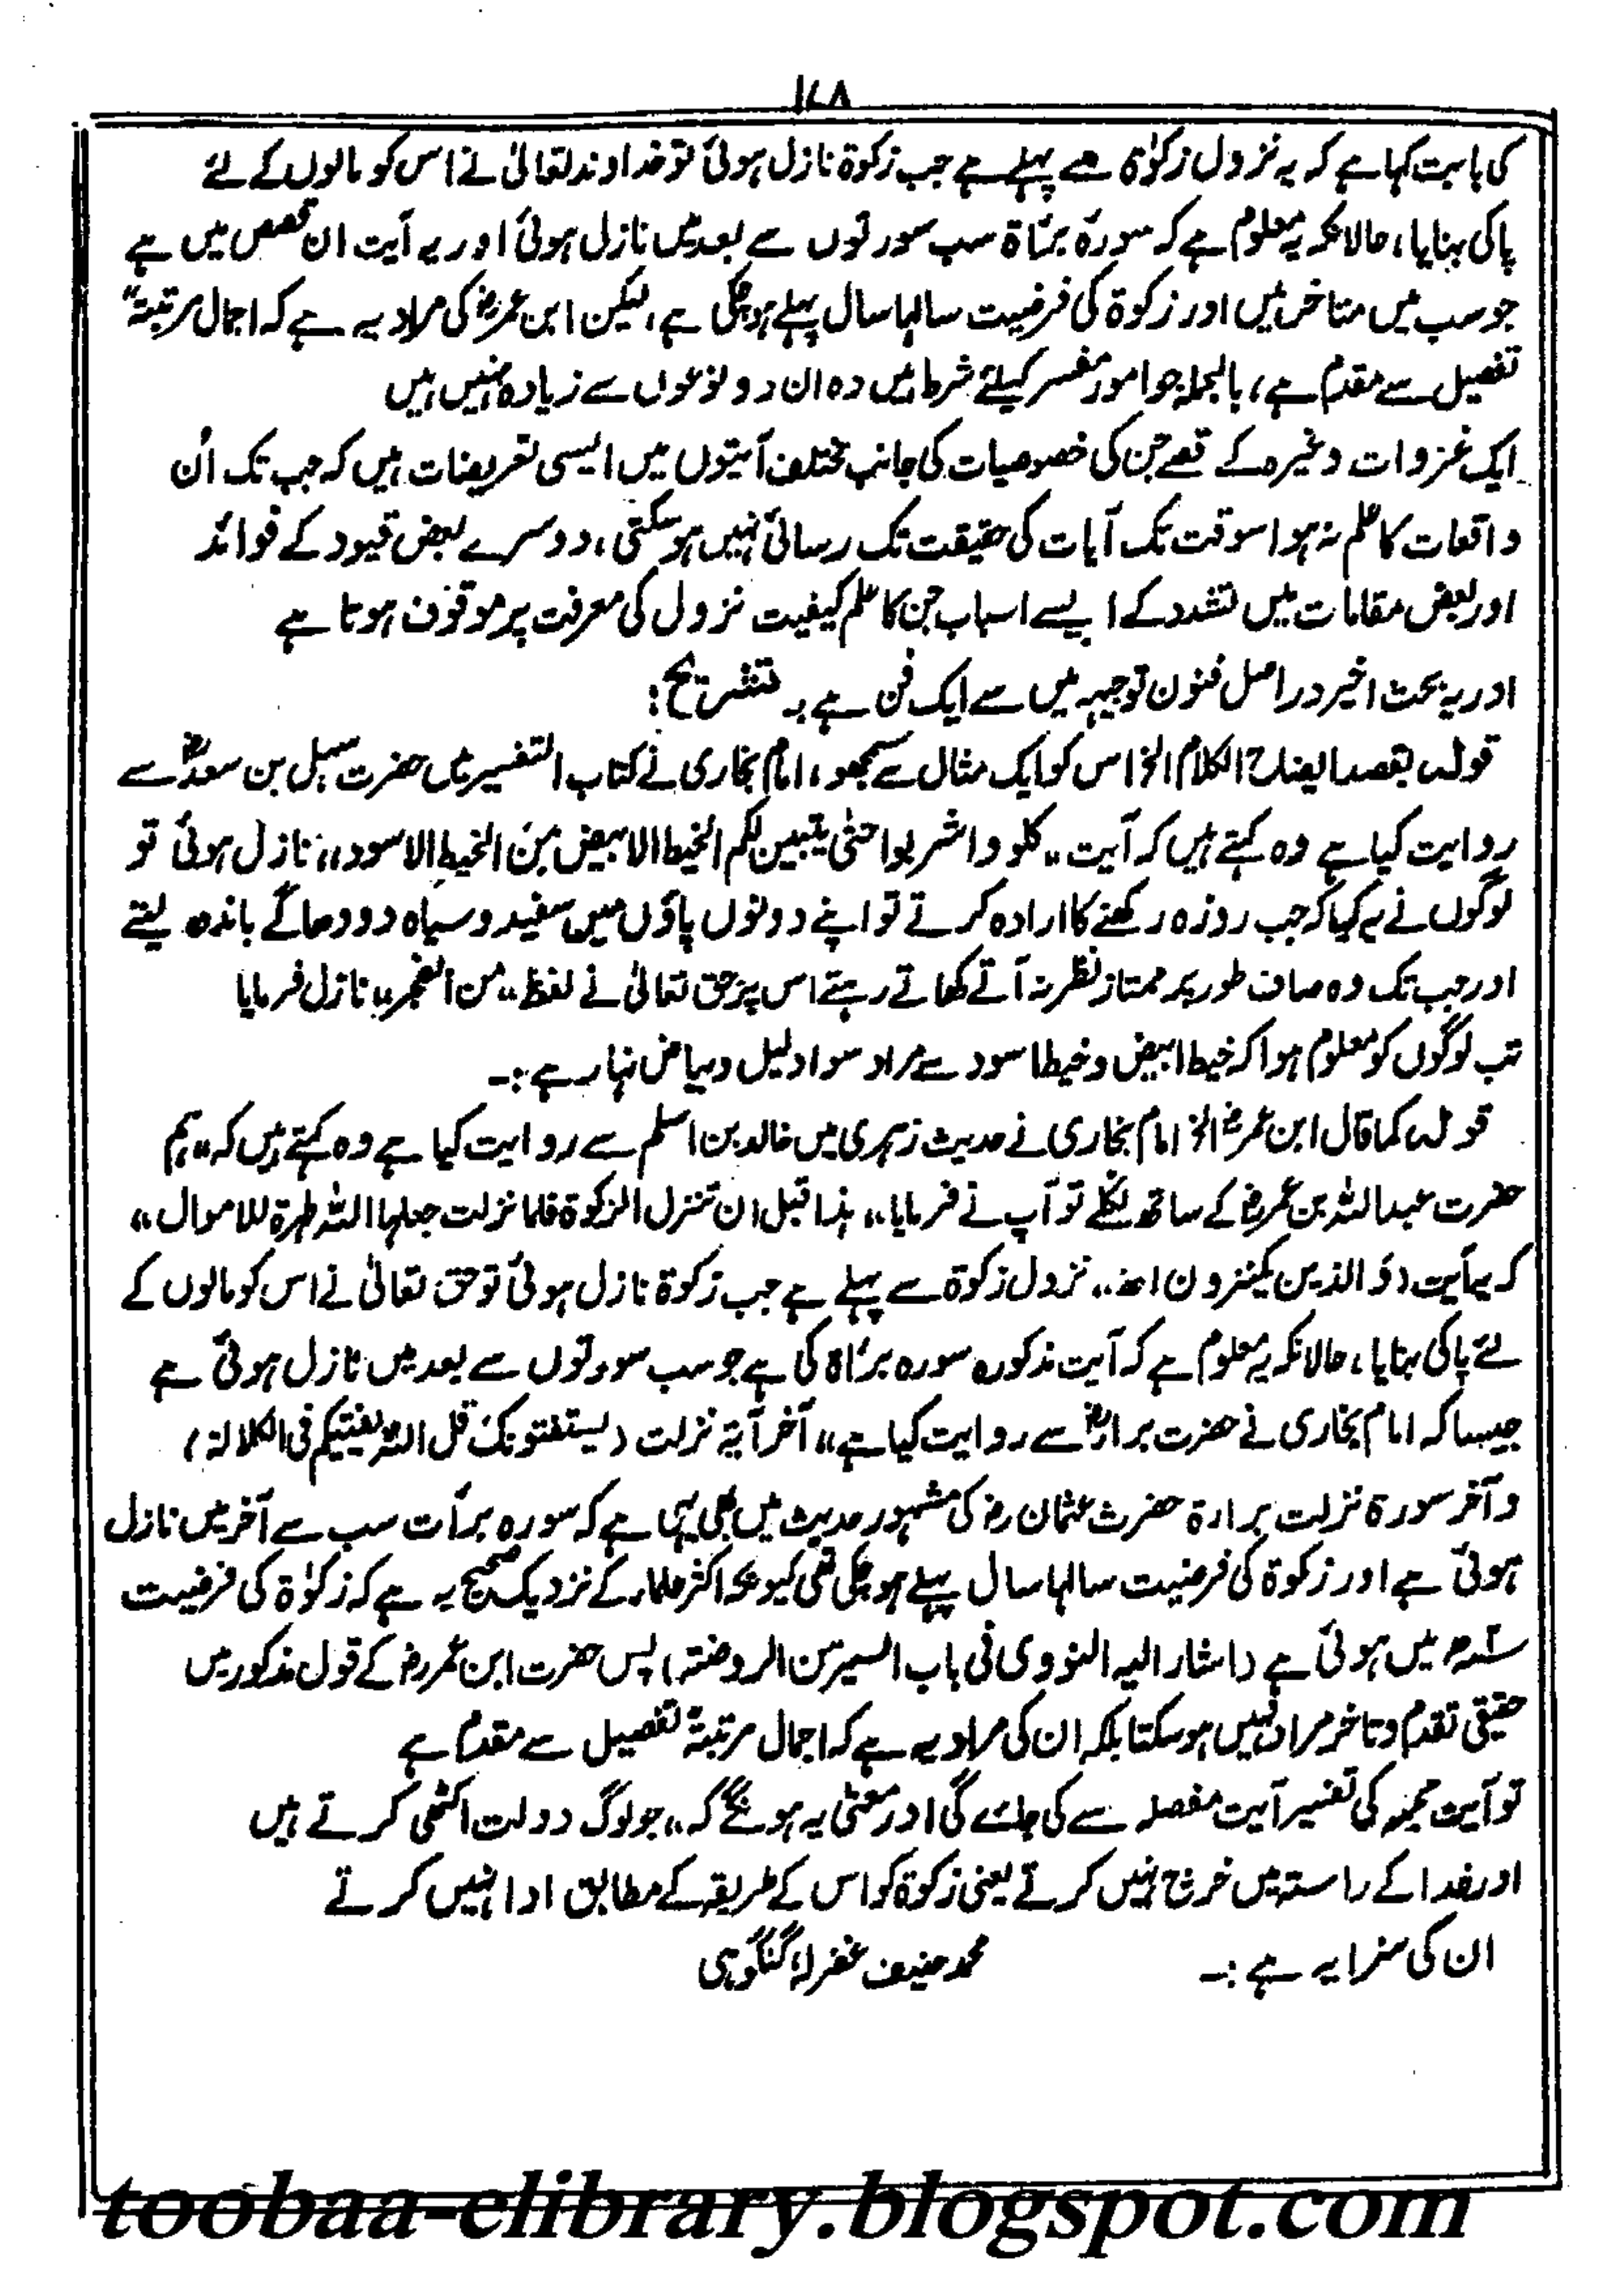 ۱۷۸
کی بابت کہا ہے کہ یہ نزول زکوٰۃ سے پہلے ہے جب زکوۃ نازل ہوئی تو خداوند تعالیٰ نے اس کو مالوں کے لئے
پاکی بنایا، حالانکہ یہ معلوم ہے کہ سورۂ برٰاۃ سب سورتوں سے بعد میں نازل ہوئی اور یہ آیت ان قصص میں ہے
جو سب میں متاخر ہیں اور زکوۃ کی فرضیت سالہا سال پہلے ہو چکی ہے، لیکن ابن عمرؓ کی مراد یہ ہے کہ اجمال مرتبۃً
تفصیل سے مقدم ہے، بالجملہ جو امور مفسر کیلئے شرط ہیں وہ ان دو نوعوں سے زیادہ نہیں ہیں
ایک غزوات وغیرہ کے قصے جن کی خصوصیات کی جانب مختلف آیتوں میں ایسی تعریضات ہیں کہ جب تک اُن
واقعات کا علم نہ ہو اسوقت تک آیات کی حقیقت تک رسائی نہیں ہو سکتی، دوسرے بعض قیود کے فوائد
اور بعض مقامات میں تشدد کے ایسے اسباب جن کا علم کیفیت نزول کی معرفت پر موقوف ہوتا ہے
اور یہ بحث اخیر دراصل فنون توجیہہ میں سے ایک فن ہے :۔ تشریح :
قولہ بقصد ایضاح الکلام الخ اس کو ایک مثال سے سمجھو، امام بخاری نے کتاب التفسیر میں حضرت سہل بن سعدؓ سے
روایت کیا ہے وہ کہتے ہیں کہ آیت ،،کلوو اشربوا حتیٰ یتبین لکم الخیط الابیض مِنَ الخیط الاسود،، نازل ہوئی تو
لوگوں نے یہ کیا کہ جب روزہ رکھنے کا ارادہ کرتے تو اپنے دونوں پاؤں میں سفید و سیاہ دو دھاگے باندھ لیتے
اور جب تک وہ صاف طور پر ممتاز نظر نہ آتے کھاتے رہتے اس پر حق تعالیٰ نے لفظ ،،من الفجر،، نازل فرمایا
تب لوگوں کو معلوم ہوا کہ خیط ابیض و خیط اسود سے مراد سواد لیل و بیاض نہار ہے :۔
قولہ کما قال ابن عمرؓ الخ امام بخاری نے حدیث زہری میں خالد بن اسلم سے روایت کیا ہے وہ کہتے ہیں کہ ،،ہم
حضرت عبد اللہ بن عمرؓ کے ساتھ نکلے تو آپ نے فرمایا ،، ہذا قبل ان تنزل الزکوۃ فلما نزلت جعلہا اللہ طہرۃ للاموال ،،
کہ یہ آیت (وَالذین یکنزون اھ،، نزول زکوۃ سے پہلے ہے جب زکوۃ نازل ہوئی تو حق تعالیٰ نے اس کو مالوں کے
لئے پاکی بنایا، حالانکہ یہ معلوم ہے کہ آیت مذکورہ سورہ برٰاۃ کی ہے جو سب سورتوں سے بعد میں نازل ہوئی ہے
جیسا کہ امام بخاری نے حضرت براءؓ سے روایت کیا ہے ،، آخر آیۃ نزلت (یستفتونک قل اللہ یفتیکم فی الکلالۃ)
وآخر سورۃ نزلت براءۃ حضرت عثمان رض کی مشہور حدیث میں بھی یہی ہے کہ سورہ برأت سب سے آخر میں نازل
ہوئی ہے اور زکوۃ کی فرضیت سالہا سال پہلے ہو چکی تھی کیونکہ اکثر علماء کے نزدیک صحیح یہ ہے کہ زکوٰۃ کی فرضیت
میں ہوئی ہے (اشار الیہ النووی فی باب السیر من الروضۃ) پس حضرت ابن عمر رض کے قول مذکور میں
حقیقی تقدم و تاخر مراد نہیں ہو سکتا بلکہ ان کی مراد یہ ہے کہ اجمال مرتبۃً تفصیل سے مقدم ہے
تو آیت مجملہ کی تفسیر آیت مفصلہ سے کی جائے گی اور معنیٰ یہ ہونگے کہ ،،جو لوگ دولت اکٹھی کرتے ہیں
اور خدا کے راستہ میں خرچ نہیں کرتے یعنی زکوۃ کو اس کے طریقہ کے مطابق ادا نہیں کرتے
ان کی سزا یہ ہے :۔ محمد حنیف غفرلہٗ گنگوہی
toobaa-elibrary.blogspot.com